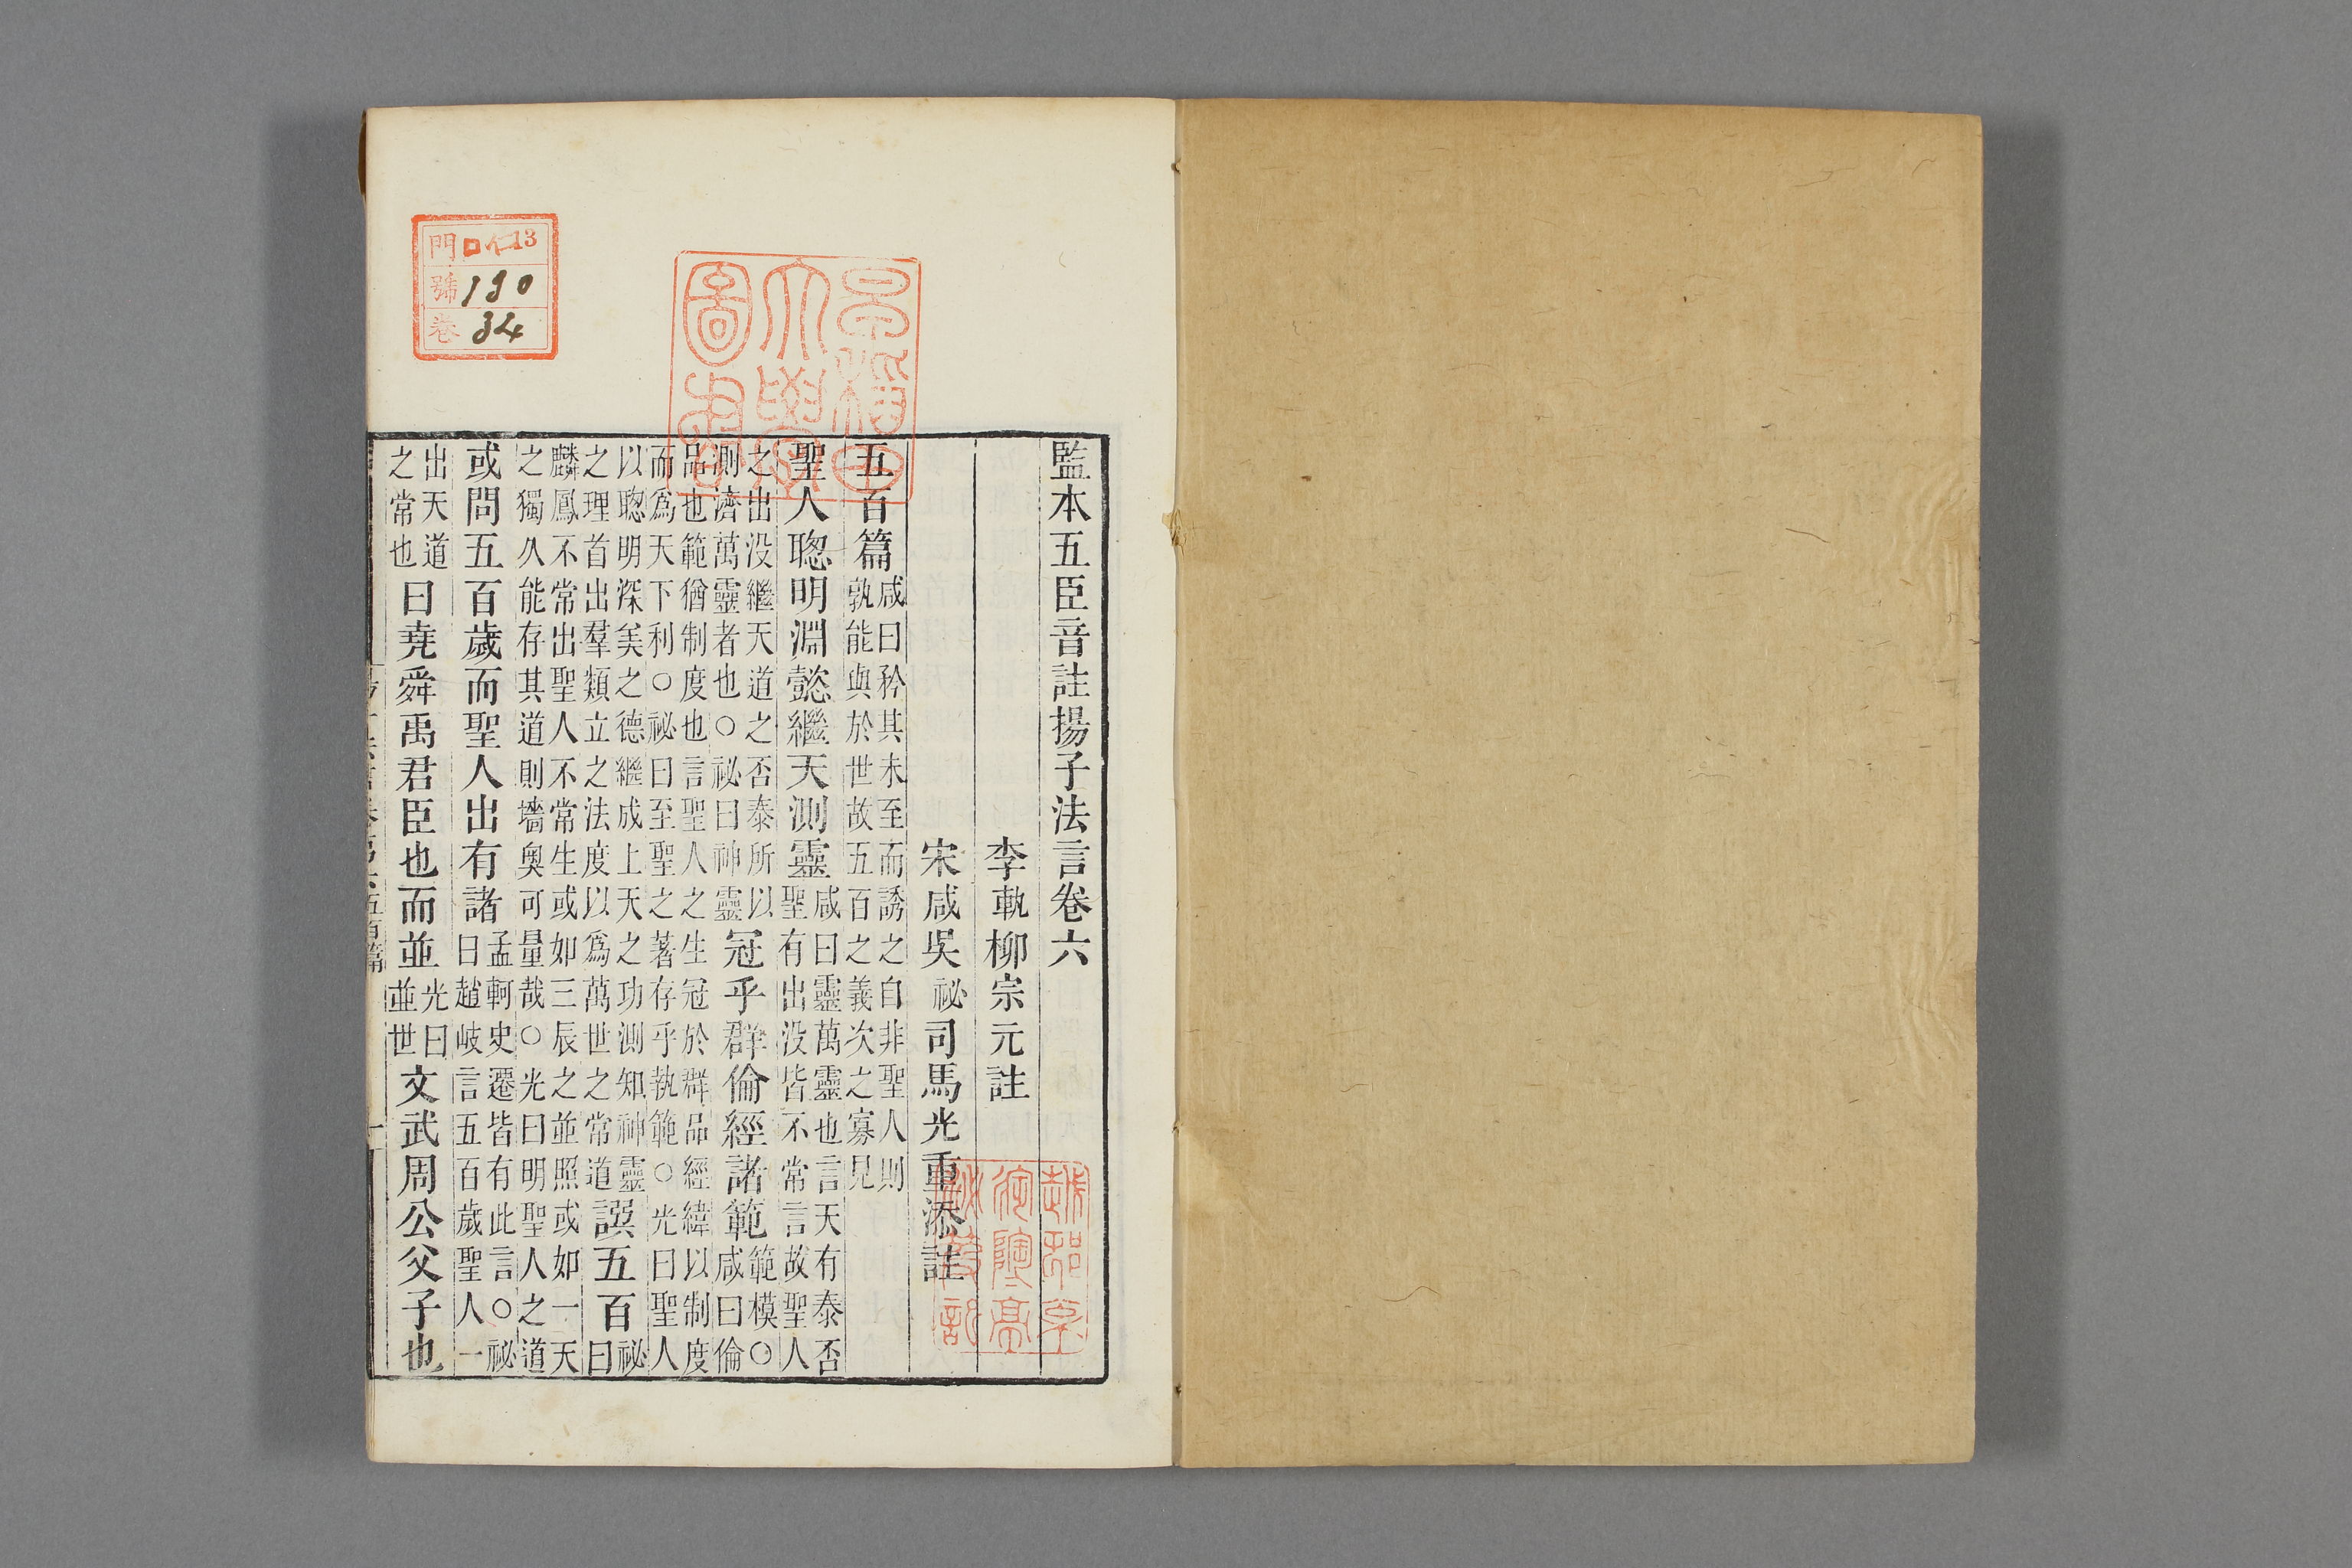 監本五臣音註揚子法言卷六
李軌柳宗元註
宋咸吳祕司馬光重添註
五百篇咸曰矜其未至而誘之之自非聖人則孰能與於世故五百之義次之寡見
聖人聦明淵懿繼天測靈咸曰靈萬靈也言天有泰否聖有出没皆不常言故聖人
之出没繼天道之否泰所以測濟萬靈者也○祕曰神靈冠乎群倫經諸範範模○咸曰倫
品也範猶制度也言聖人之生冠於群品經緯以制度而爲天下利○祕曰至聖之著存乎執範○光曰聖人
以聦明深美之德繼成上天之功測知神靈之理首出羣類立之法度以爲萬世之常道譔五百祕曰
麟鳳不常出聖人不常生或如三辰之並照或如一天之獨久能存其道則墻奥可量哉○光曰明聖人之道
或問五百歲而聖人出有諸孟軻史遷皆有此言○祕曰趙岐言五百歲聖人一
出天道之常也曰堯舜禹君臣也而並光曰並世文武周公父子也
五百篇
早稻田大學圖書
門ロ仁13
號190
卷34